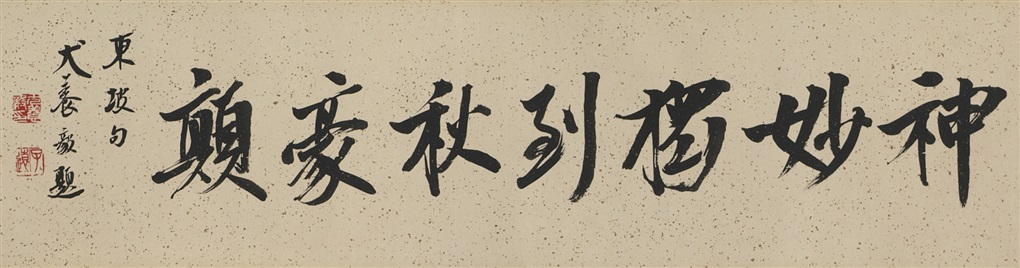 神妙獨到秋豪顛
東坡句
犬養毅題